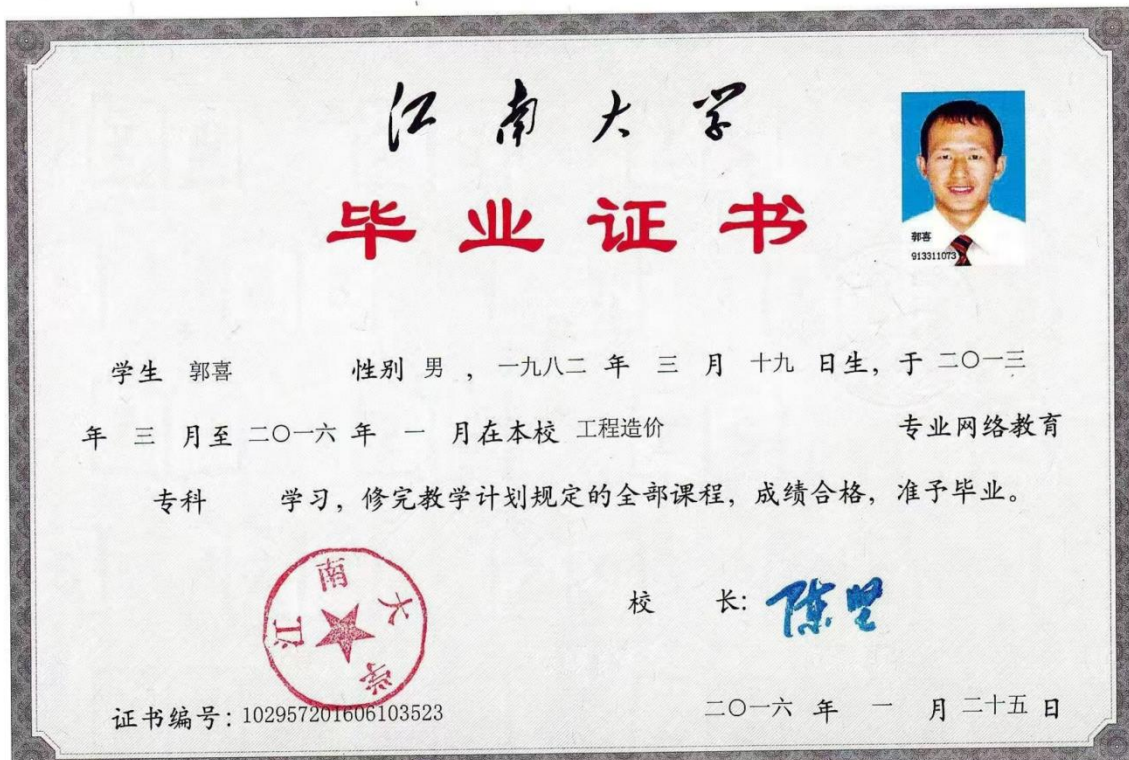 江南大学
毕业证书
郭喜
913311073
学生 郭喜 性别 男 ，一九八二 年 三 月 十九 日生，于 二〇一三
年 三 月至 二〇一六 年 一 月在本校 工程造价 专业网络教育
专科 学习，修完教学计划规定的全部课程，成绩合格，准予毕业。
江南大学
校 长：陈坚
证书编号：102957201606103523
二〇一六 年 一 月 二十五 日